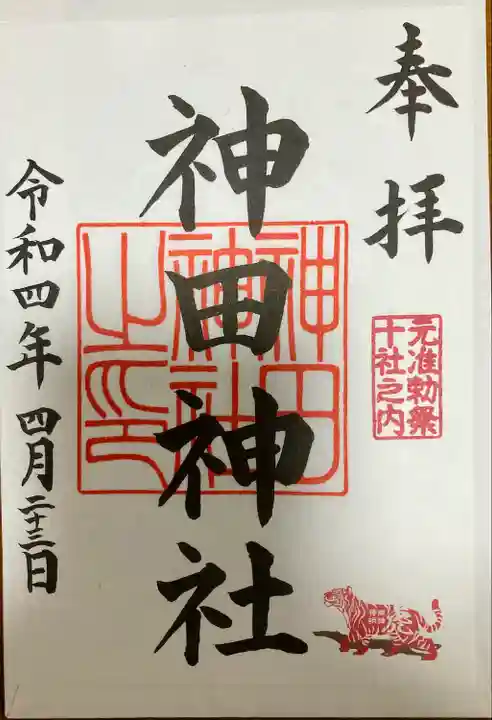 奉拝
元准勅祭
十社之内
神田神社
神田
神社
之印
令和四年 四月二十三日